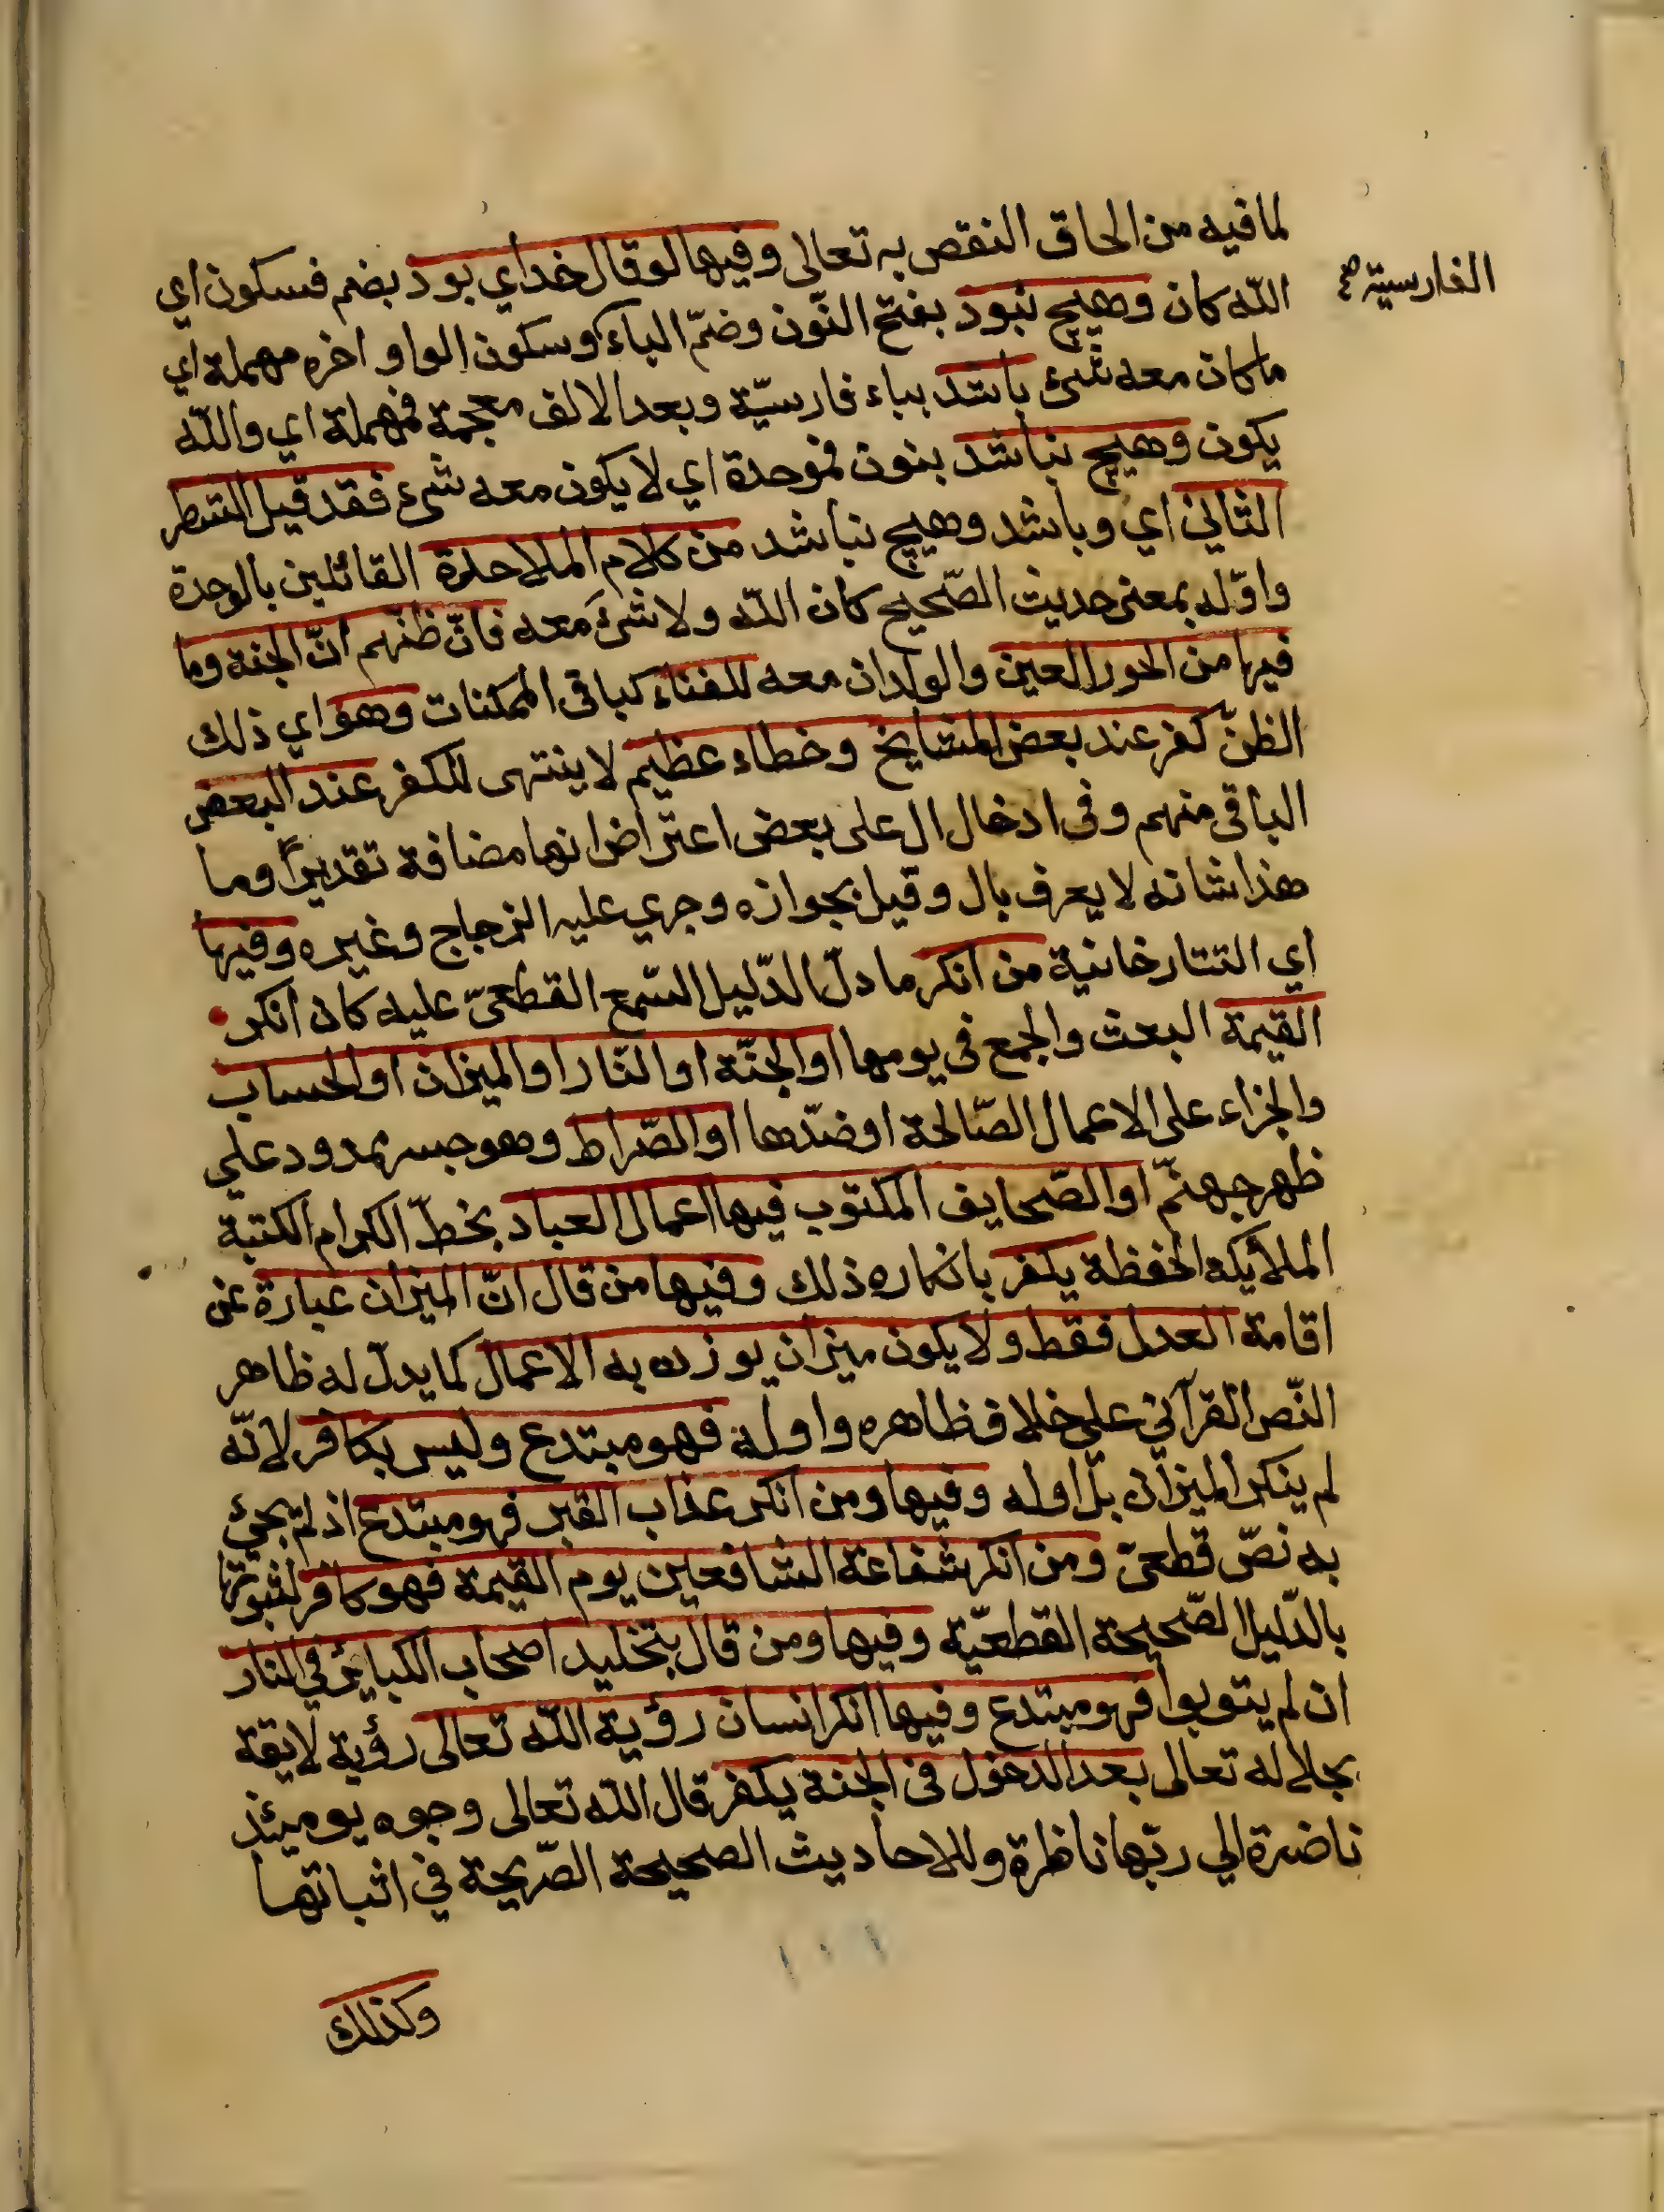 لما فيه من الحاق النقص به تعالى وفيها لو قال خداي بود بضم فسكون اي
الفارسية صح
الله كان وهيچ نبود بفتح النّون وضمّ الباء وسكون الواو اخره مهملة اي
ما كان معه شئ باشد بباء فارسيّة وبعد الالف معجمة فمهملة اي والله
يكون وهيچ نباشد بنون فموحدة اي لا يكون معه شئ فقد قيل الشطر
الثاني اي وباشد وهيچ نباشد من كلام الملاحدة القائلين بالوحدة
واوّله بمعنى حديث الصّحيح كان الله ولا شئ معه فانّ ظنّهم انّ الجنة وما
فيها من الحور العين والولدان معه للفناء كباقى الممكنات وهو اي ذلك
الظنّ كفر عند بعض المشايخ وخطاء عظيم لا ينتهى للكفر عند البعض
الباقى منهم وفى ادخال ال على بعض اعتراض انها مضافة تقديراً وما
هذا شانه لا يعرف بال وقيل بجوازه وجري عليه الزجاج وغيره وفيها
اي التتارخانية من انكر ما دلّ الدّليل السّمع القطعىّ عليه كان انكر
القيمة البعث والجمع فى يومها او الجنّة او النّار او الميزان او الحساب
والجزاء على الاعمال الصّالحة او ضدّها او الصّراط وهو جسر ممدود علي
ظهر جهنّم او الصّحايف المكتوب فيها اعمال العباد بخطّ الكرام الكتبة
الملائكة الحفظة يكفر بانكاره ذلك وفيها من قال انّ الميزان عبارة عن
اقامة العدل فقط ولا يكون ميزان يوزن به الاعمال كما يدلّ له ظاهر
النّص القرآني علي خلاف ظاهره واوله فهو مبتدع وليس بكافر لانّه
لم ينكر الميزان بل اوله وفيها ومن انكر عذاب القبر فهو مبتدع اذ لم يجئ
به نصّ قطعىّ ومن انكر شفاعة الشافعين يوم القيمة فهو كافر لثبوتها
بالدّليل الصّحيحة القطعيّة وفيها ومن قال بتخليد اصحاب الكبائر في النار
ان لم يتوبوا فهو مبتدع وفيها انكر انسان رؤية الله تعالى رؤية لايقة
بجلاله تعالى بعد الدخول فى الجنة يكفر قال الله تعالى وجوه يومئذ
ناضرة الي ربّها ناظرة وللاحاديث الصحيحة الصّريحة في اثباتها
وكذلك